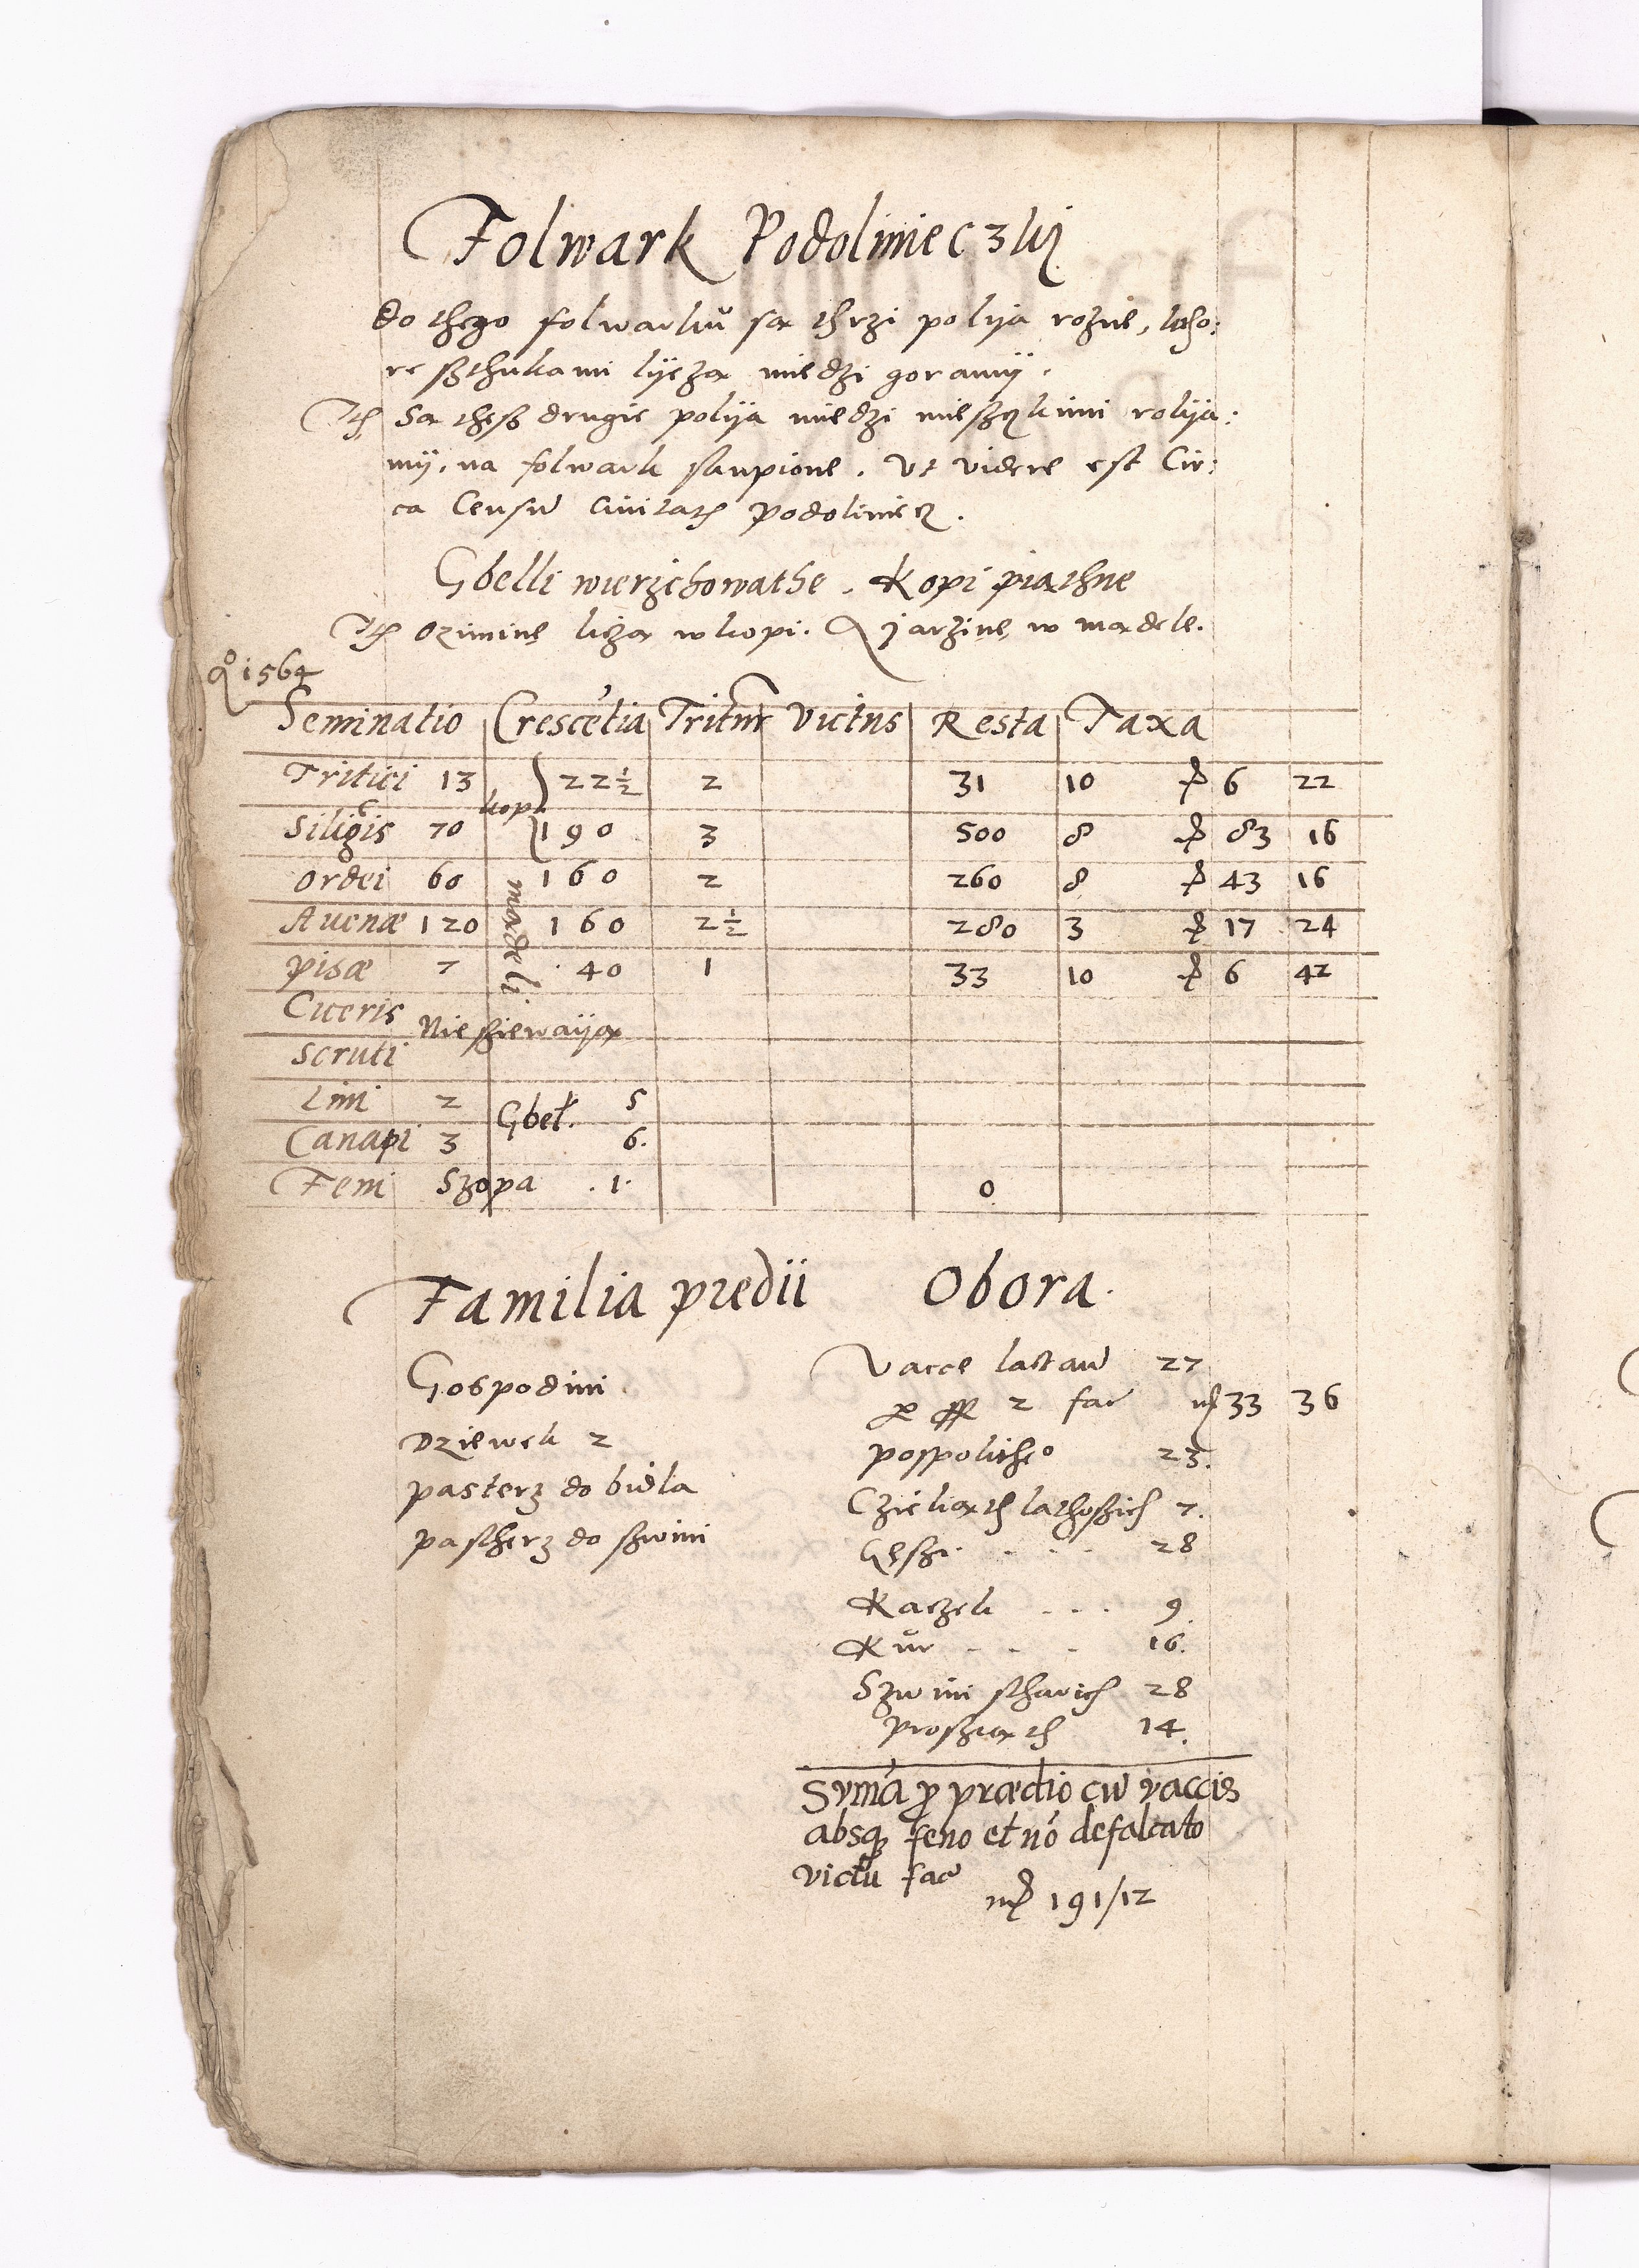 Folwark Podolinieczki
do thego folwarku są thrzi polija rożne, ktho:
re ßthukami lyeżą miedzi goramÿ.
Ith Są theß drugie polija miedzi mießczkimi rolija:
mÿ, na folwark skupione. Vt videre est Cir:
ca Censū Ciuitatis Podoliniecz.
Gbelli wierzchowathe. Kopi piąthne
Ith Oziminę liczą w kopi. A jarzinę w mądele.
Ao 1564
Seminatio Crescētia Tritur Victus Resta Taxa
Tritici 13 kop 22½ 2 31 10 6 22
Siliginis 70 190 3 500 8 83 16
Ordei 60 mądeli 160 2 260 8 43 16
Auenæ 120 160 2½ 280 3 17 24
pisæ 7 40 1 33 10 6 42
Ciceris Nie ßiewaiją
Scruti
Lini 2 Gbeł. 5
Canapi 3 6.
Feni Szopa .1. 0
Familia predii Obora.
Gospodini
Dziewek 2
pasterz do bidla
pastherz do ßwini
Vacce lactan 27
2 fac 33 36
pospolitheo 23.
Czieliąth lathoßich 7.
Gęßi . . . 28
Kaczek . . . 9.
Kur . . . 16.
Szwini starich 28
Proßiąth 14.
Summa pro prædio cū vaccis
absq feno et nō defalcato
victu fac
191/12